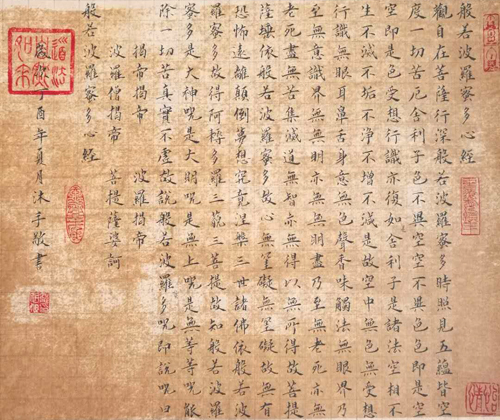 般若波羅蜜多心經
觀自在菩薩行深般若波羅蜜多時照見五蘊皆空
度一切苦厄舍利子色不異空空不異色色即是空
空即是色受想行識亦復如舍利子是諸法空相不
生不滅不垢不淨不增不減是故空中無色無受想
行識無眼耳鼻舌身意無色聲香味觸法無眼界乃
至無意識界無無明亦無無明盡乃至無老死亦無
老死盡無苦集滅道無智亦無得以無所得故菩提
薩埵依般若波羅蜜多故心無罣礙無罣礙故無有
恐怖遠離顛倒夢想究竟涅槃三世諸佛依般若波
羅蜜多故得阿耨多羅三藐三菩提故知般若波羅
蜜多是大神呪是大明呪是無上呪是無等等呪能
除一切苦真實不虛故說般若波羅蜜多呪即說呪曰
揭帝揭帝 波羅揭帝
波羅僧揭帝 菩提薩婆訶
般若波羅蜜多心經
丁酉年夏月沐手敬書